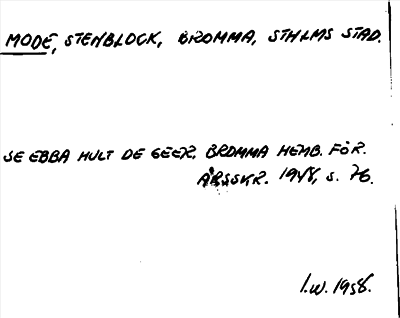 MODE, STENBLOCK, BROMMA, STHLMS STAD.
SE EBBA HULT DE GEER, BROMMA HEMB. FÖR.
ÅRSSKR. 1948, S. 76.
I.W. 1958.